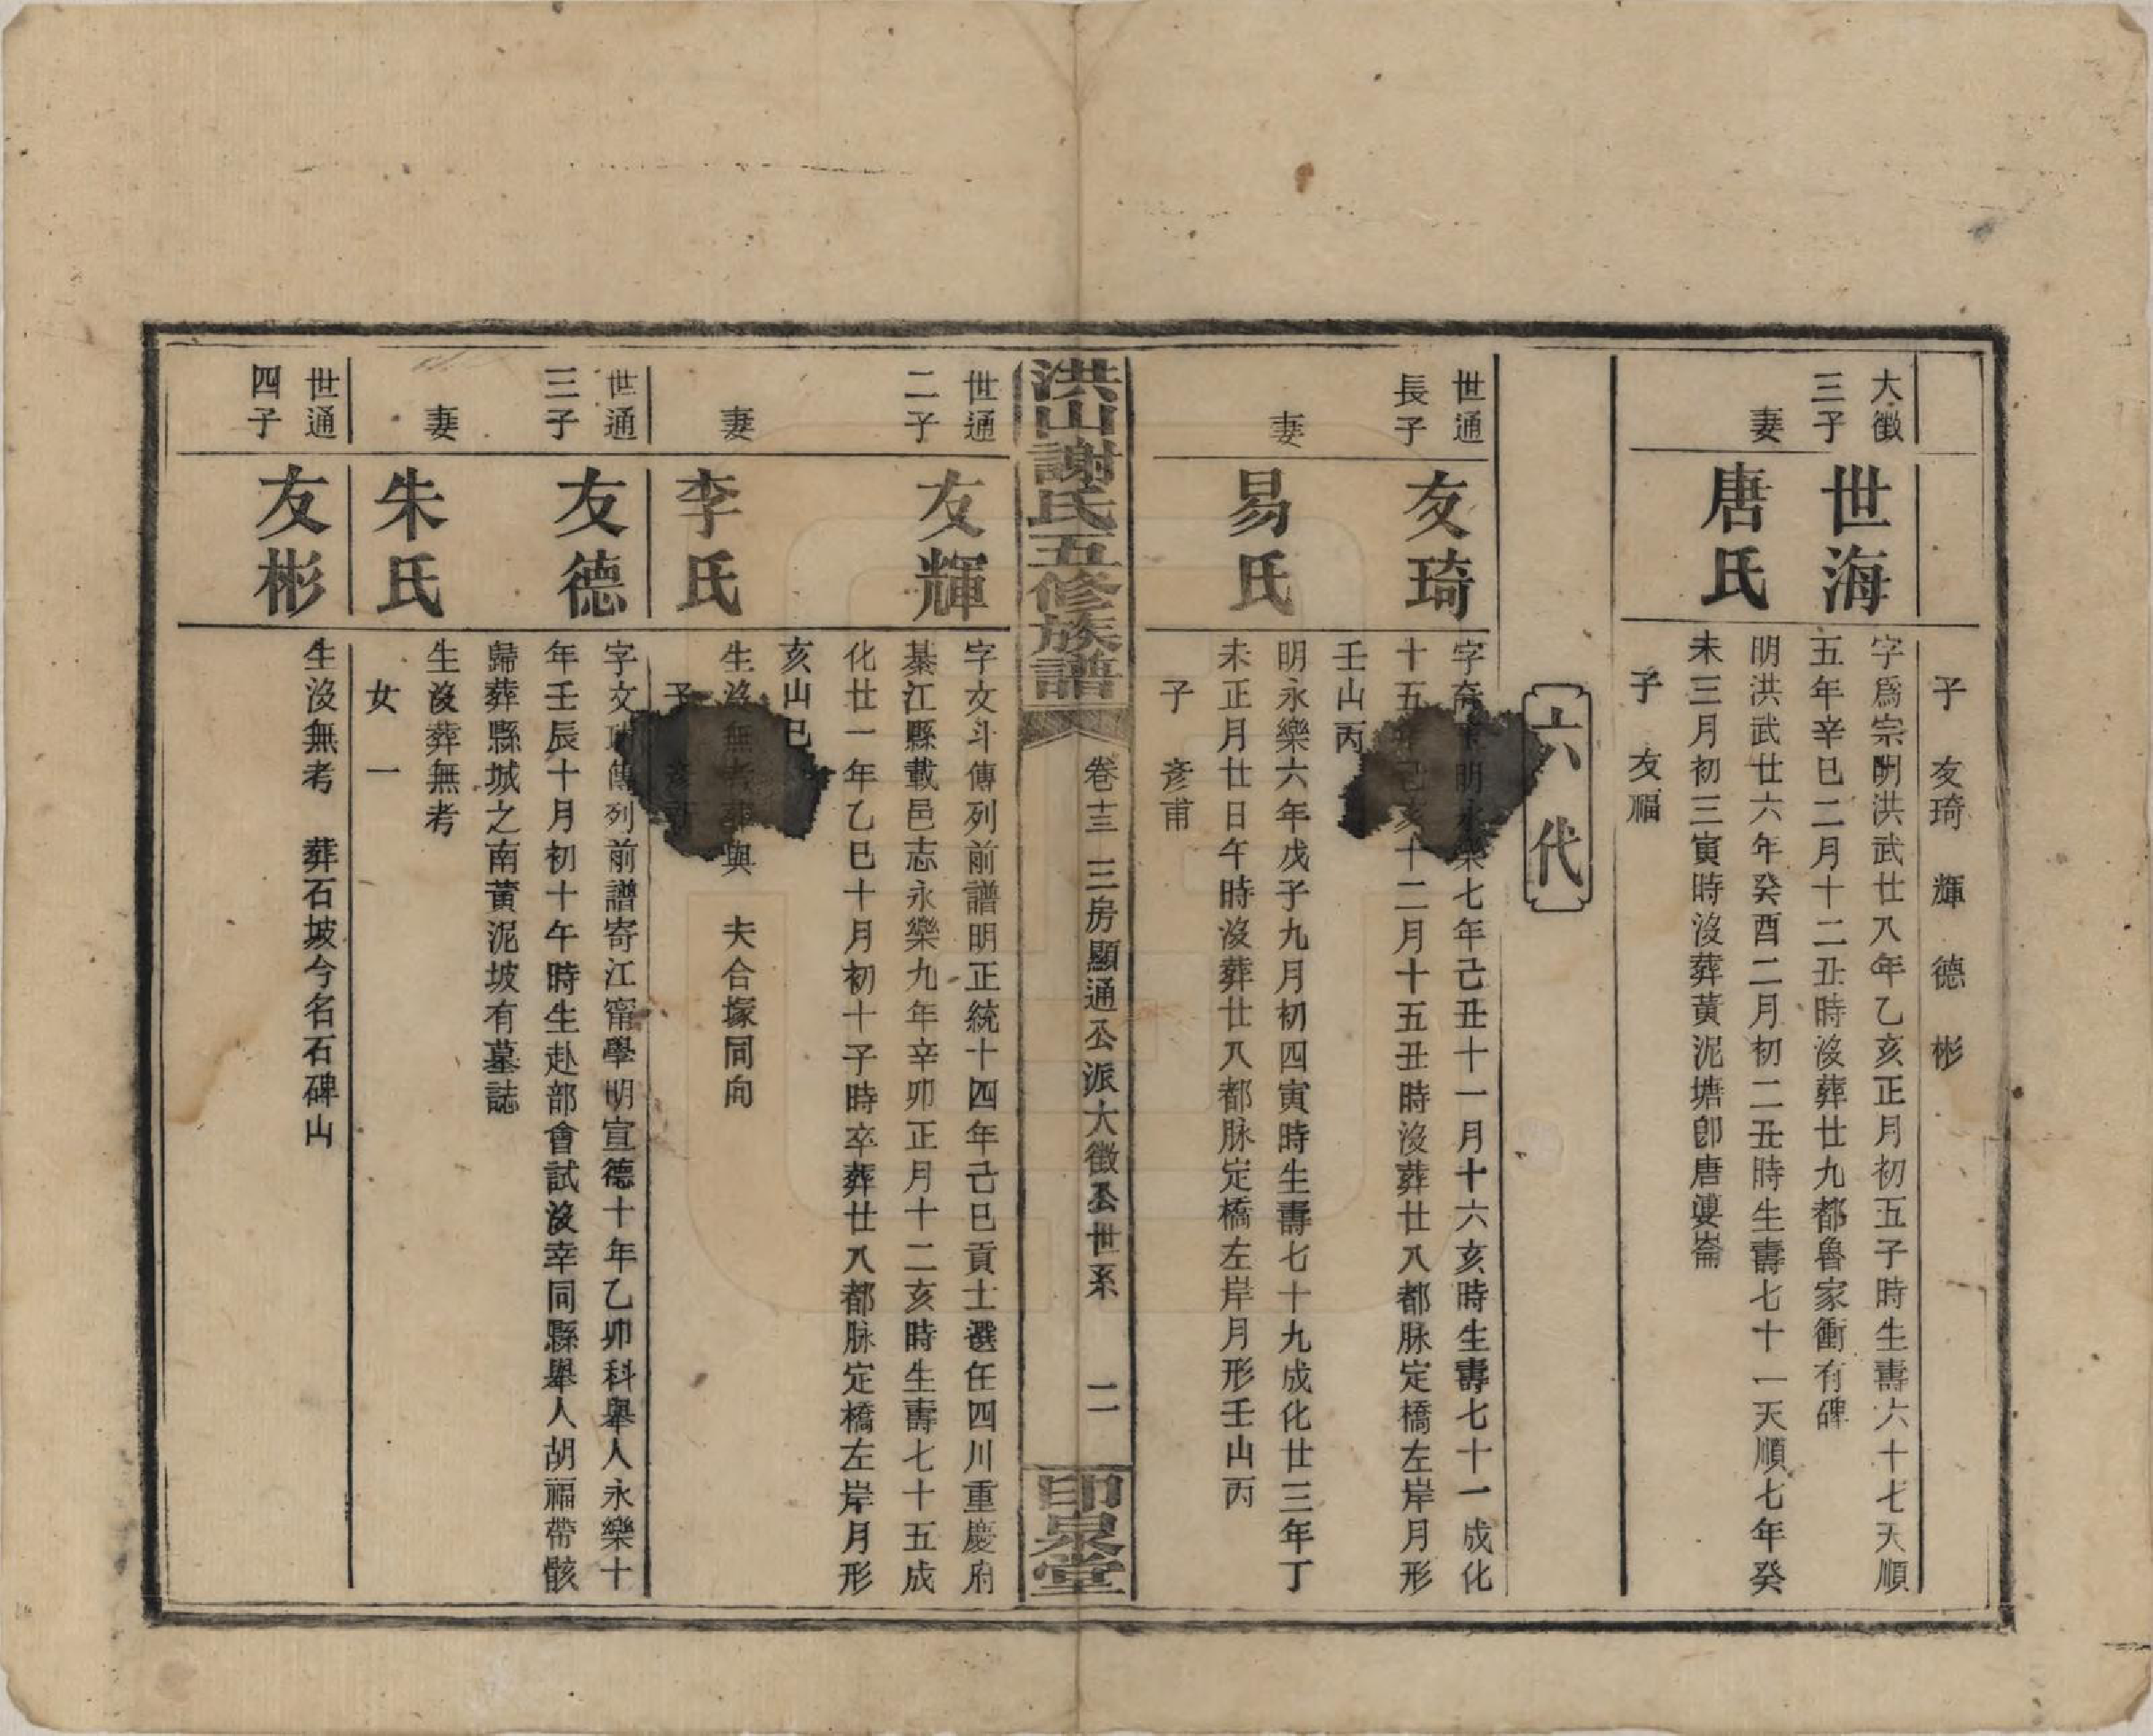 子 友琦 輝 德 彬
大徵三子
世海
字爲宗明洪武廿八年乙亥正月初五子時生壽六十七天順
五年辛巳二月十二丑時沒葬廿九都魯家衝有碑
妻
唐氏
明洪武廿六年癸酉二月初二丑時生壽七十一天順七年癸
未三月初三寅時沒葬黃泥塘卽唐婆崙
子 友福
六代
世通長子
友琦
字 明永樂七年己丑十一月十六亥時生壽七十一成化
十五年己亥十二月十五丑時沒葬廿八都脉定橋左岸月形
壬山丙
妻
易氏
明永樂六年戊子九月初四寅時生壽七十九成化廿三年丁
未正月廿日午時沒葬廿八都脉定橋左岸月形壬山丙
子 彥甫
洪山謝氏五修族譜
卷十三 三房顯通公派大徵公世系 二
印泉堂
世通二子
友輝
字文斗傳列前譜明正統十四年己巳貢士選任四川重慶府
綦江縣載邑志永樂九年辛卯正月十二亥時生壽七十五成
化廿一年乙巳十月初十子時卒葬廿八都脉定橋左岸月形
亥山巳
妻
李氏
生沒無考葬與 夫合塚同向
子 彥
世通三子
友德
字文 傳列前譜寄江甯學明宣德十年乙卯科舉人永樂十
年壬辰十月初十午時生赴部會試沒幸同縣舉人胡福帶骸
歸葬縣城之南黃泥坡有墓誌
妻
朱氏
生沒葬無考
女 一
世通四子
友彬
生沒無考 葬石坡今名石碑山